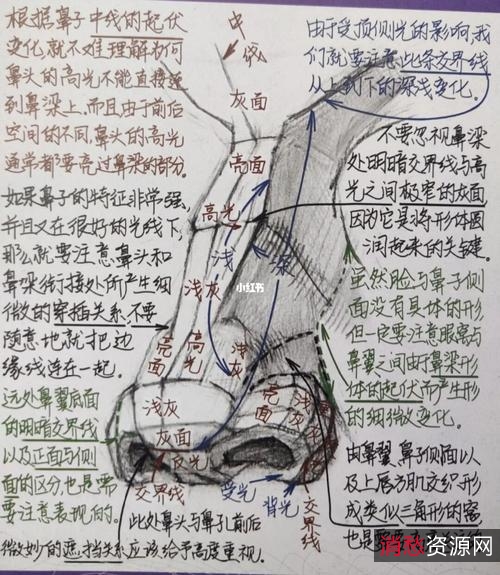 根据鼻子中线的起伏
变化,就不难理解为何
鼻头的高光不能直接连
到鼻梁上,而且由于前后
空间的不同,鼻头的高光
通常都要亮过鼻梁的部分。
如果鼻子的特征非常强,
并且又在很好的光线下,
那么就要注意鼻头和
鼻梁衔接处所产生细
微的穿插关系,不要
随意地就把边
缘线连在一起。
远处鼻翼底面
的明暗交界线
以及正面与侧
面的区分也是需
要注意表现的。
中线
灰面
亮面
高光
浅
深
浅灰
小红书
亮面
高光
浅灰
亮面
浅灰
灰面
反光
交界线
受光
背光
交界线
灰
由于受顶侧光的影响,我
们就要注意此条交界线
从上到下的深浅变化。
不要忽视鼻梁
处明暗交界线与高
光之间极窄的灰面
因为它是将形体圆
润起来的关键。
虽然脸与鼻子侧
面没有具体的形
但一定要注意眼窝与
鼻翼之间由于鼻梁形
体的起伏而产生形
的细微变化。
由鼻翼、鼻子侧面以
及上唇方肌交织形
成类似三角形的窝
也是需要
此处鼻头与鼻孔前后
微妙的遮挡关系应该给予高度重视。
资源网